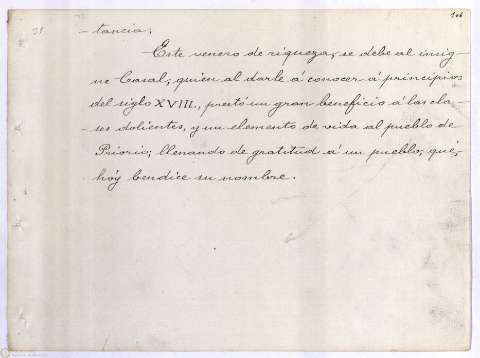 31
106
-tancia;
Este venero de riqueza, se debe al insig-
ne Casal, quien al darle á conocer á principios
del siglo XVIII, prestó un gran beneficio á las cla-
ses dolientes, y un elemento de vida al pueblo de
Priorio; llenando de gratitud á un pueblo, que,
hóy bendice su nombre.